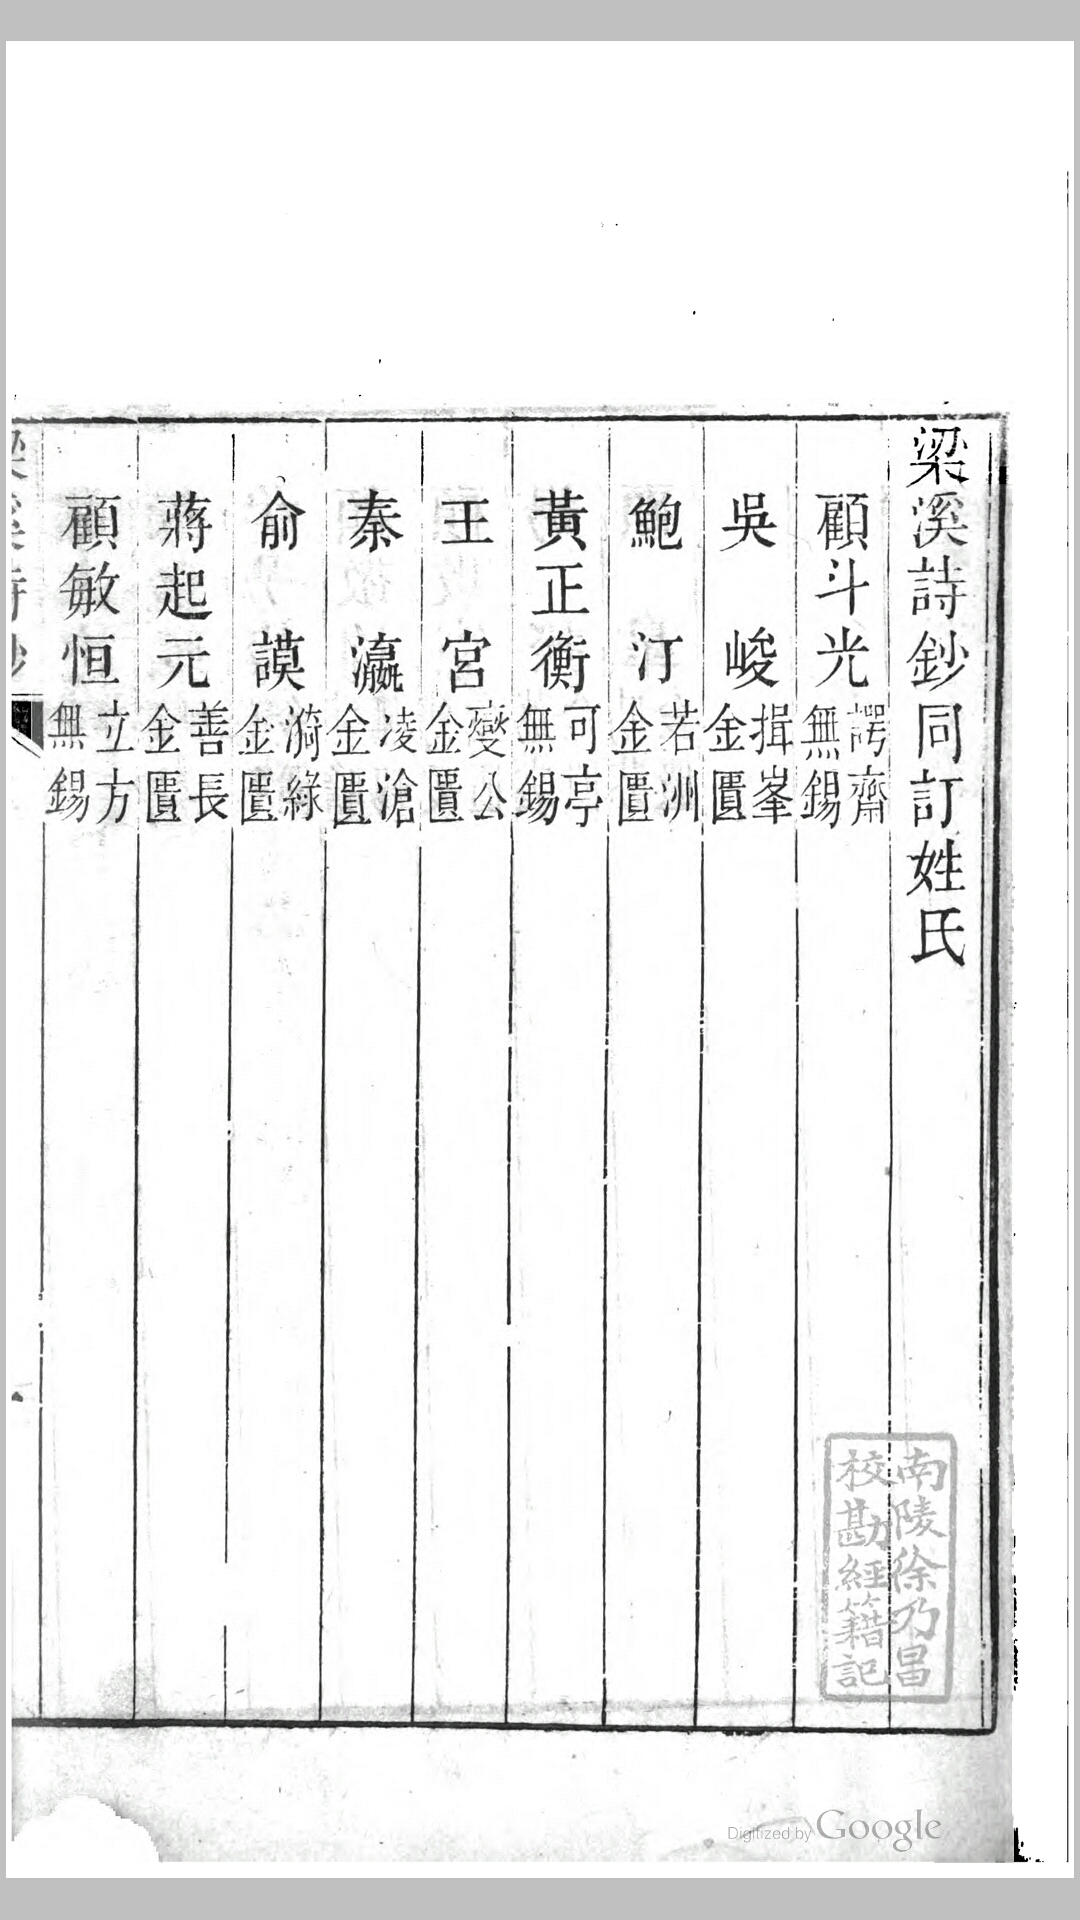 梁溪詩鈔同訂姓氏
顧斗光 諤齋 無錫
吳峻 揖峯 金匱
鮑汀 若洲 金匱
黃正衡 可亭 無錫
王宮 燮公 金匱
秦瀛 凌滄 金匱
俞謨 漪綠 金匱
蔣起元 善長 金匱
顧敏恒 立方 無錫
南陵徐乃昌
校勘經籍記
Digitized by Google